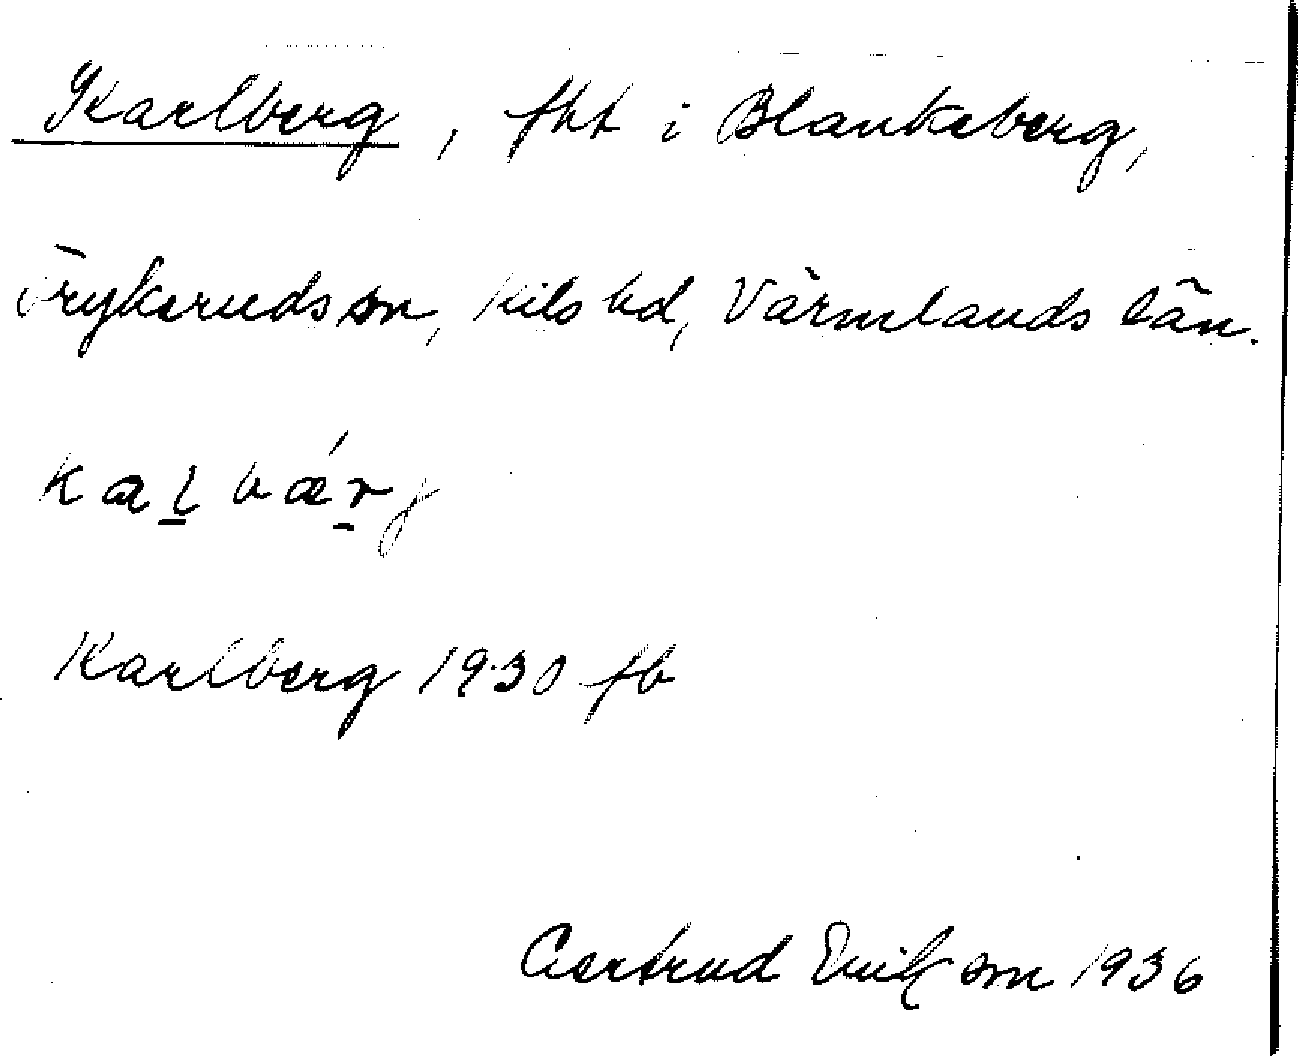 Karlberg, fht i Blankeberg,
Frykeruds sn, Kils hd, Värmlands län.
kaḻ bǽṟj
Karlberg 1930 fb
Gertrud Eriksson 1936